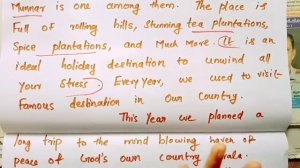 Munnar is one among them. The place is
Full of rolling hills, Stunning tea plantations,
Spice plantations, and Much More. It is an
ideal holiday destination to unwind all
your Stress. Every year, we used to visit
Famous destination in Our Country.
This Year we planned a
long trip to the mind blowing haven of
peace of God's own country